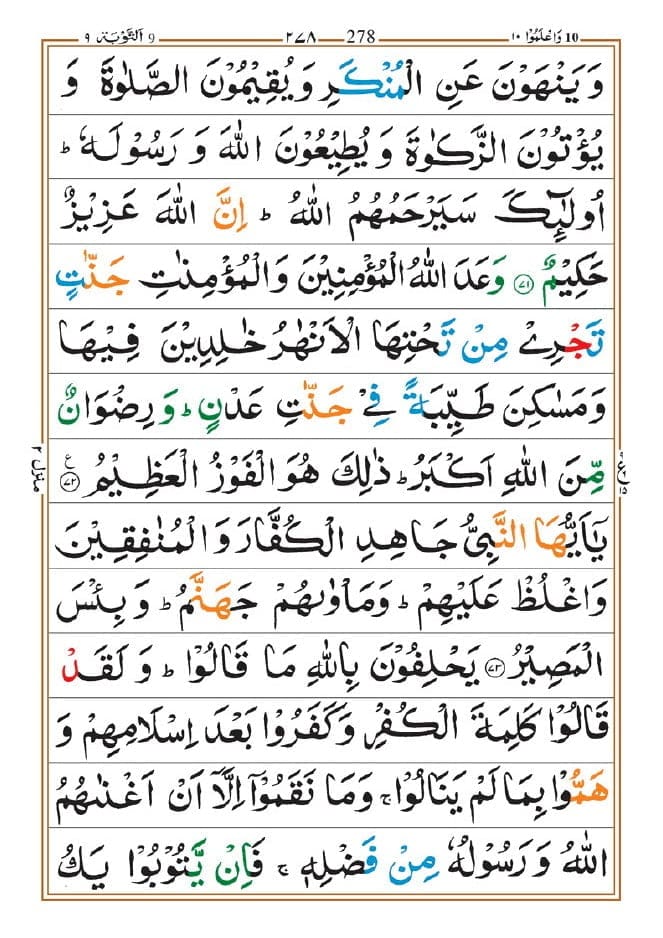 10 وَاعْلَمُوْٓا ١٠ 278 ٢٧٨ 9 اَلتَّوْبَة ٩
وَ یَنْهَوْنَ عَنِ الْمُنْكَرِ وَ یُقِیْمُوْنَ الصَّلٰوةَ وَ
یُؤْتُوْنَ الزَّكٰوةَ وَ یُطِیْعُوْنَ اللّٰهَ وَ رَسُوْلَهٗ ؕ
اُولٰٓىِٕكَ سَیَرْحَمُهُمُ اللّٰهُ ؕ اِنَّ اللّٰهَ عَزِیْزٌ
حَكِیْمٌ ﴿۷۱﴾ وَعَدَ اللّٰهُ الْمُؤْمِنِیْنَ وَالْمُؤْمِنٰتِ جَنّٰتٍ
تَجْرِیْ مِنْ تَحْتِهَا الْاَنْهٰرُ خٰلِدِیْنَ فِیْهَا
وَ مَسٰكِنَ طَیِّبَةً فِیْ جَنّٰتِ عَدْنٍ ؕ وَ رِضْوَانٌ
مِّنَ اللّٰهِ اَكْبَرُ ؕ ذٰلِكَ هُوَ الْفَوْزُ الْعَظِیْمُ ﴿۷۲﴾ ع
یٰۤاَیُّهَا النَّبِیُّ جَاهِدِ الْكُفَّارَ وَ الْمُنٰفِقِیْنَ
وَاغْلُظْ عَلَیْهِمْ ؕ وَمَاْوٰىهُمْ جَهَنَّمُ ؕ وَ بِئْسَ
الْمَصِیْرُ ﴿۷۳﴾ یَحْلِفُوْنَ بِاللّٰهِ مَا قَالُوْا ؕ وَ لَقَدْ
قَالُوْا كَلِمَةَ الْكُفْرِ وَكَفَرُوْا بَعْدَ اِسْلَامِهِمْ وَ
هَمُّوْا بِمَا لَمْ یَنَالُوْا ۚ وَمَا نَقَمُوْۤا اِلَّاۤ اَنْ اَغْنٰىهُمُ
اللّٰهُ وَ رَسُوْلُهٗ مِنْ فَضْلِهٖ ۚ فَاِنْ یَّتُوْبُوْا یَكُ
منزل ٢